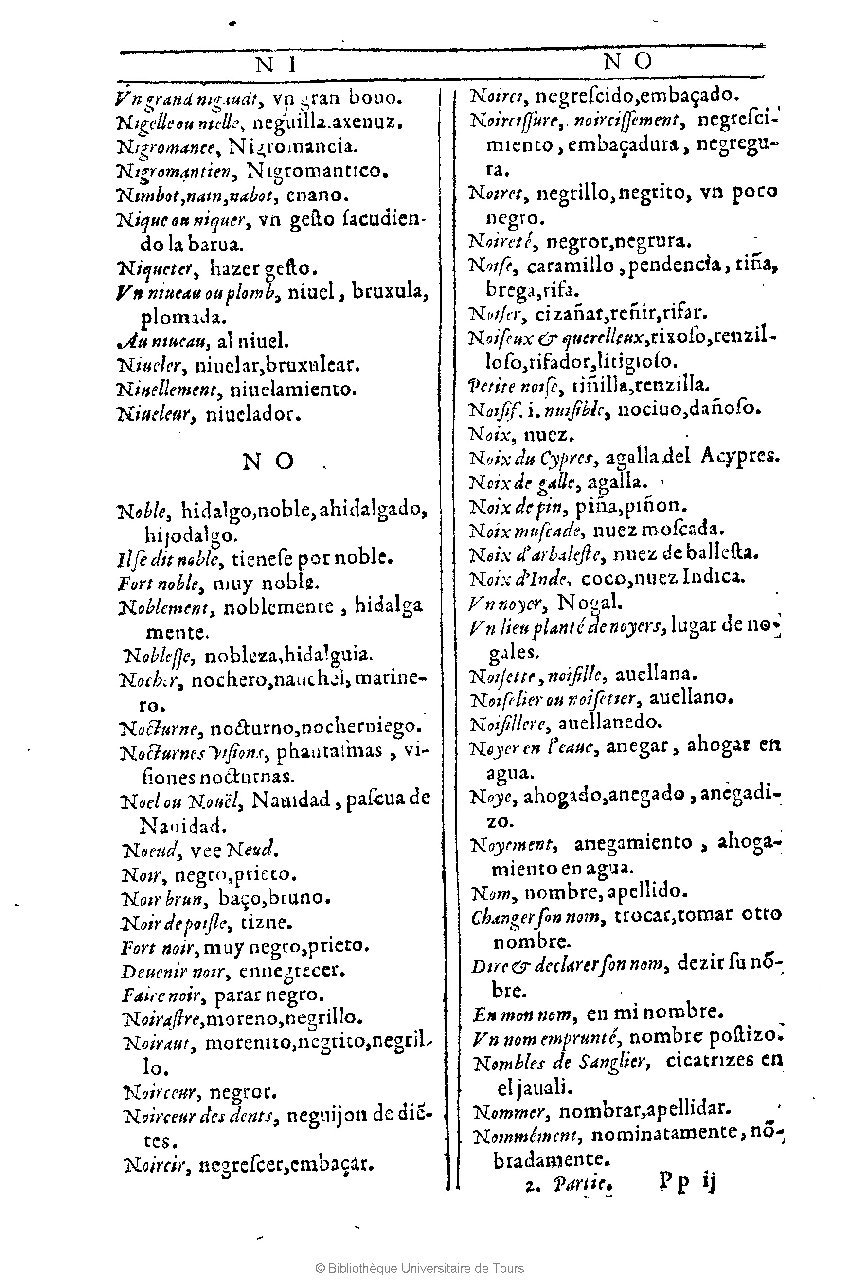 N I
Vn grand nigaudt, vn gran bouo.
Nigelle ou nielle, neguilla.axenuz.
Nigromance, Nigromancia.
Nigromantien, Nigromantico.
Nimbot,nain,nabot, enano.
Nique ou niquer, vn gesto sacudien-
do la barua.
Niqueter, hazer gesto.
Vn niueau ou plomb, niuel, bruxula,
plomada.
Au niueau, al niuel.
Niueler, niuelar,bruxulear.
Niuellement, niuelamiento.
Niueleur, niuelador.
N O
Noble, hidalgo,noble,ahidalgado,
hijodalgo.
Il se dit noble, tienese por noble.
Fort noble, muy noble.
Noblement, noblemente, hidalga
mente.
Noblesse, nobleza,hidalguia.
Nocher, nochero,naucher,marine-
ro.
Nocturne, nocturno,nocherniego.
Nocturnes visions, phantasmas, vi-
siones nocturnas.
Noel ou Nouël, Nauidad, pascua de
Nauidad.
Noeud, vee Neud.
Noir, negro,prieto.
Noir brun, baço,bruno.
Noir de poisle, tizne.
Fort noir, muy negro,prieto.
Deuenir noir, ennegrecer.
Faire noir, parar negro.
Noirastre,moreno,negrillo.
Noiraut, morenito,negrito,negril-
lo.
Noirceur, negror.
Noirceur des dents, neguijon de dië-
tes.
Noircir, negrescer,embaçar.
N O
Noirci, negrescido,embaçado.
Noircissure, noircissement, negresci-
miento, embaçadura, negregu-
ra.
Noiret, negrillo,negrito, vn poco
negro.
Noireté, negror,negrura.
Noise, caramillo,pendencia, riña,
brega,rifa.
Noiser, cizañar,reñir,rifar.
Noiseux & querelleux,rixoso,renzil-
loso,rifador,litigioso.
Petite noise, riñilla,renzilla.
Noisif. i. nuisible, nociuo,dañoso.
Noix, nuez.
Noix du Cypres, agalla del Acypres.
Noix de galle, agalla.
Noix de pin, piña,piñon.
Noix muscade, nuez moscada.
Noix d'arbaleste, nuez de ballesta.
Noix d'Inde, coco,nuez Indica.
Vn noyer, Nogal.
Vn lieu planté de noyers, lugar de no-
gales.
Noisette, noisille, auellana.
Noiselier ou noisetier, auellano.
Noisillere, auellanedo.
Noyer en l'eaue, anegar, ahogar en
agua.
Noye, ahogado,anegado, anegadi-
zo.
Noyement, anegamiento, ahoga-
miento en agua.
Nom, nombre,apellido.
Changer son nom, trocar,tomar otro
nombre.
Dire & declarer son nom, dezir su nõ-
bre.
En mon nom, en mi nombre.
Vn nom emprunté, nombre postizo.
Nombles de Sanglier, cicatrizes en
el jauali.
Nommer, nombrar,apellidar.
Nommément, nominatamente, nõ-
bradamente.
2. Partie. Pp ij
© Bibliothèque Universitaire de Tours